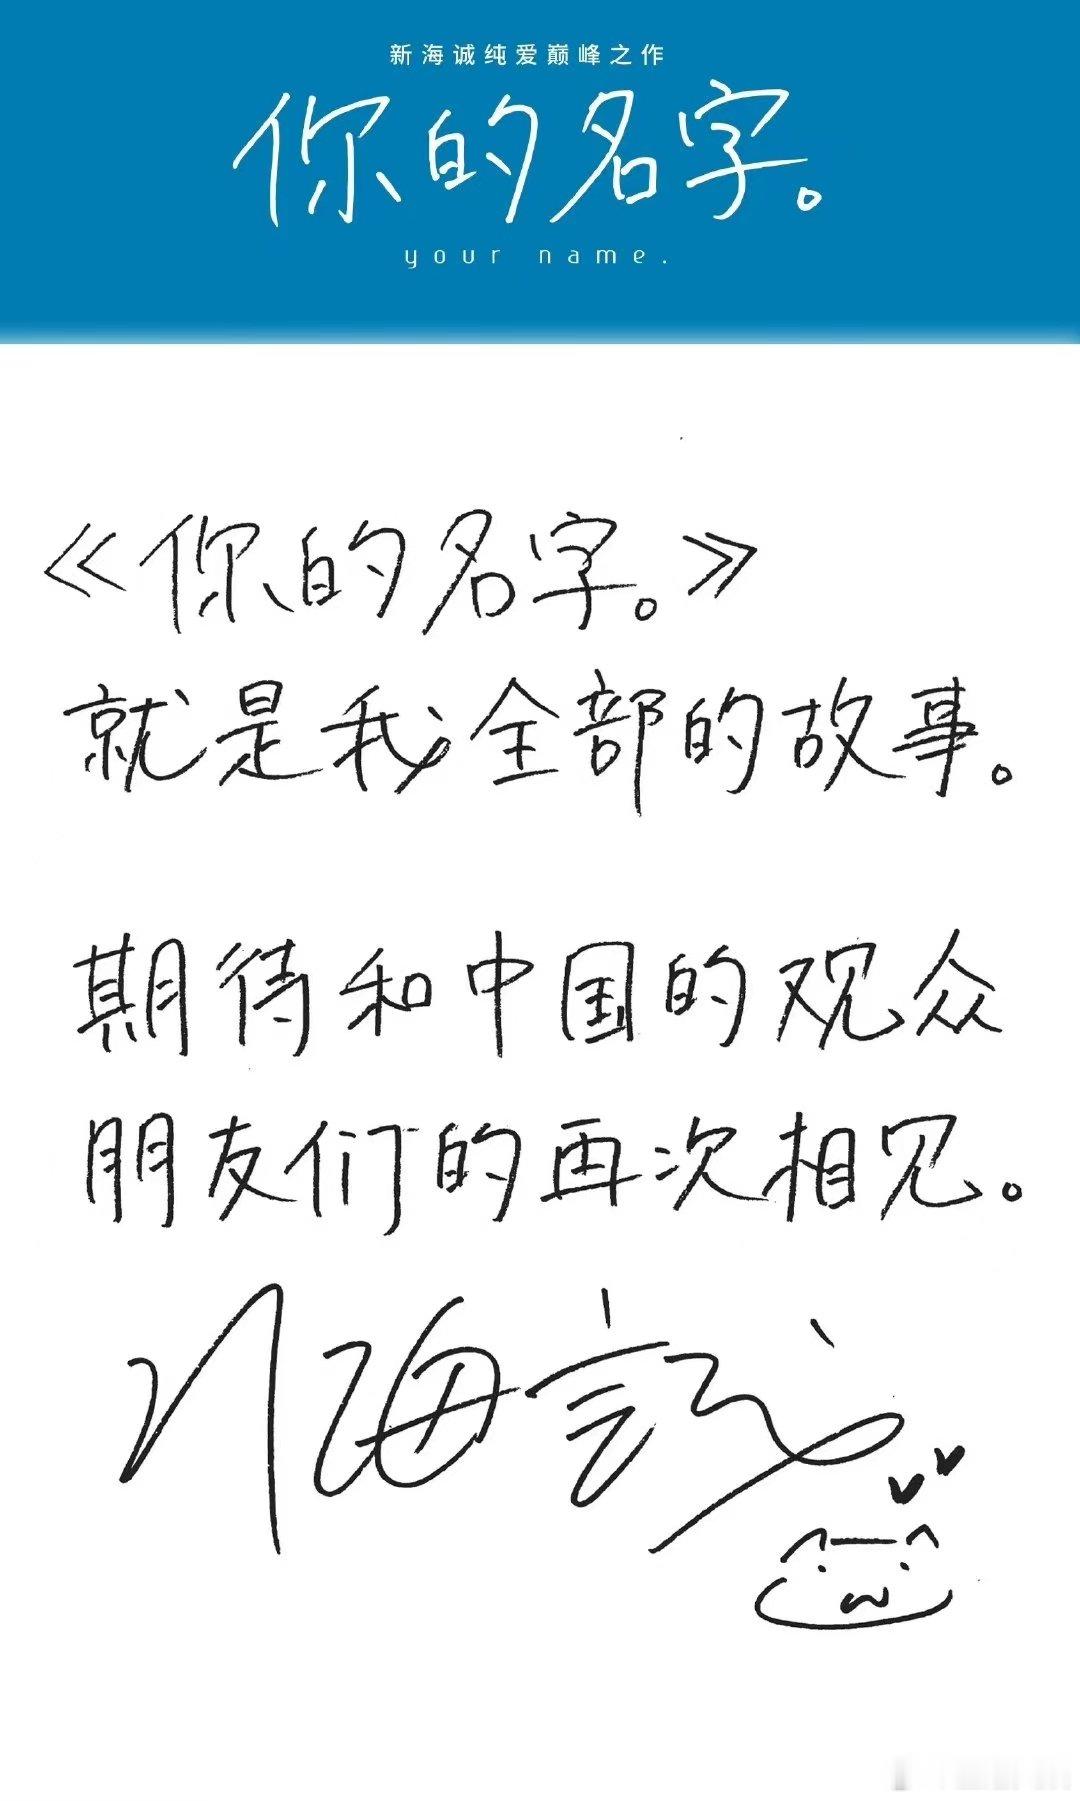 新海诚纯爱巅峰之作
你的名字。
your name.
《你的名字。》
就是我全部的故事。
期待和中国的观众
朋友们的再次相见。